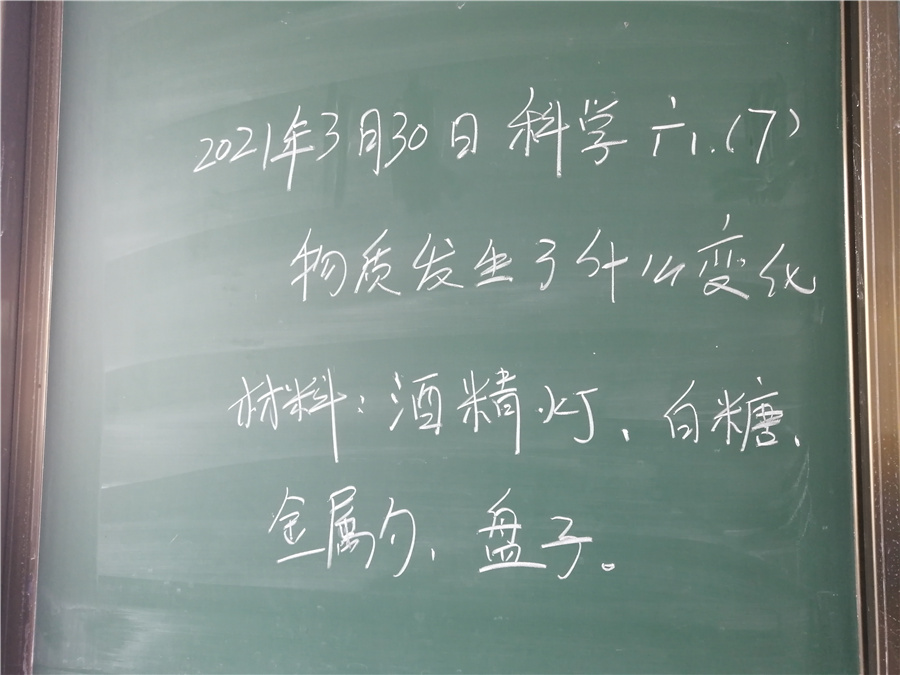 2021年3月30日 科学 六.(7)
物质发生了什么变化
材料:酒精灯、白糖、
金属勺、盘子。